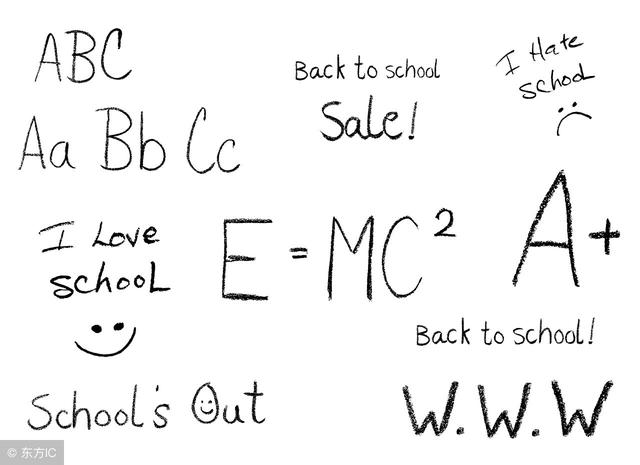 ABC
Aa Bb Cc
Back to school
Sale!
I Hate
school
I Love
school
E = MC²
A+
Back to school!
School's Out
W.W.W
© 东方IC